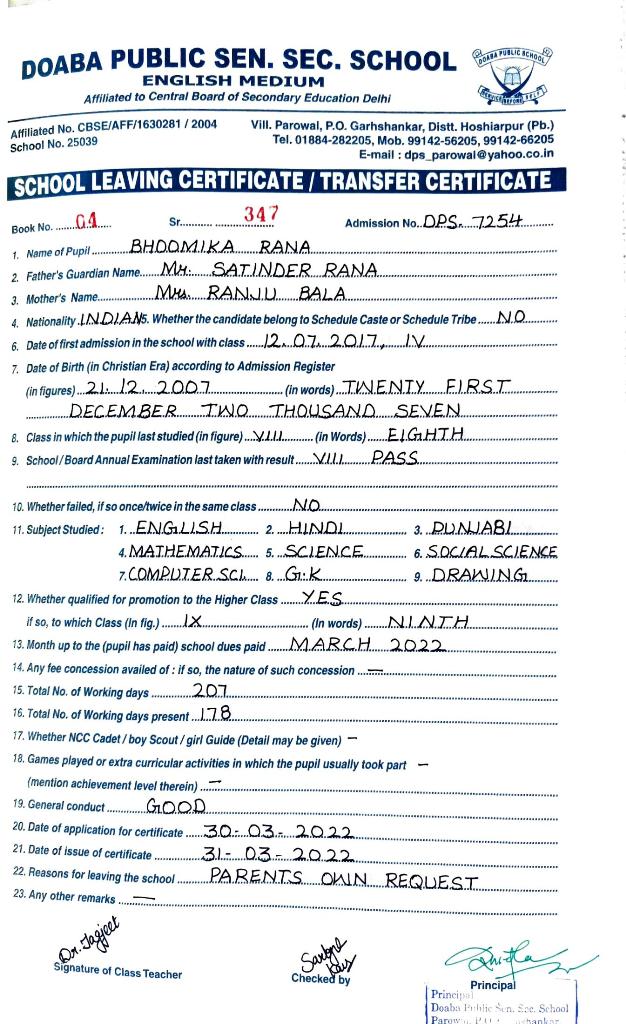 DOABA PUBLIC SEN. SEC. SCHOOL
ENGLISH MEDIUM
Affiliated to Central Board of Secondary Education Delhi
DOABA PUBLIC SCHOOL
SERVICE BEFORE SELF
Affiliated No. CBSE/AFF/1630281 / 2004 Vill. Parowal, P.O. Garhshankar, Distt. Hoshiarpur (Pb.)
School No. 25039 Tel. 01884-282205, Mob. 99142-56205, 99142-66205
E-mail : dps_parowal@yahoo.co.in
SCHOOL LEAVING CERTIFICATE / TRANSFER CERTIFICATE
Book No. 04 Sr. 347 Admission No. DPS. 7254
1. Name of Pupil BHOOMIKA RANA
2. Father's Guardian Name Mr. SATINDER RANA
3. Mother's Name Mrs. RANJU BALA
4. Nationality INDIAN 5. Whether the candidate belong to Schedule Caste or Schedule Tribe NO
6. Date of first admission in the school with class 12.07.2017, IV
7. Date of Birth (in Christian Era) according to Admission Register
(in figures) 21.12.2007 (in words) TWENTY FIRST
DECEMBER TWO THOUSAND SEVEN
8. Class in which the pupil last studied (in figure) VIII (in Words) EIGHTH
9. School / Board Annual Examination last taken with result VIII PASS
10. Whether failed, if so once/twice in the same class NO
11. Subject Studied : 1. ENGLISH 2. HINDI 3. PUNJABI
4. MATHEMATICS 5. SCIENCE 6. SOCIAL SCIENCE
7. COMPUTER SCI. 8. G.K 9. DRAWING
12. Whether qualified for promotion to the Higher Class YES
if so, to which Class (In fig.) IX (In words) NINTH
13. Month up to the (pupil has paid) school dues paid MARCH 2022
14. Any fee concession availed of : if so, the nature of such concession —
15. Total No. of Working days 207
16. Total No. of Working days present 178
17. Whether NCC Cadet / boy Scout / girl Guide (Detail may be given) –
18. Games played or extra curricular activities in which the pupil usually took part –
(mention achievement level therein) —
19. General conduct GOOD
20. Date of application for certificate 30-03-2022
21. Date of issue of certificate 31-03-2022
22. Reasons for leaving the school PARENTS OWN REQUEST
23. Any other remarks —
Dr. Jagjeet
Signature of Class Teacher Checked by Principal
Principal
Doaba Public Sen. Sec. School